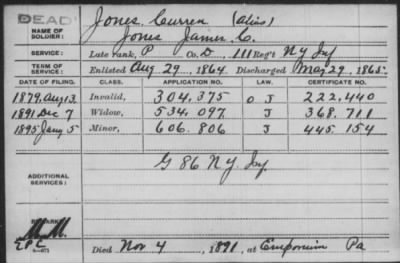 DEAD
NAME OF SOLDIER: Jones, Curren (Alias)
Jones James C.
SERVICE: Late rank, P Co. D, 111 Reg't N Y Inf
TERM OF SERVICE: Enlisted Aug 29, 1864. Discharged May 29, 1865.
DATE OF FILING. CLASS. APPLICATION NO. LAW. CERTIFICATE NO.
1879, Aug 13. Invalid, 304,375 O J 222,440
1891 Dec 7 Widow, 534,097 J 368,711
1895 Jany 5 Minor, 606,806 J 445,154
ADDITIONAL SERVICES: G 86 N Y Inf.
REMARKS:
EPC
Died Nov 4, 1891, at Emporium Pa